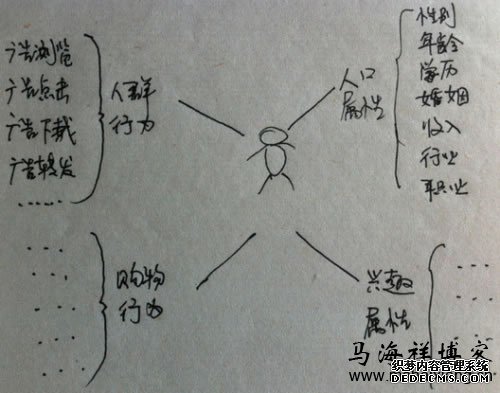 广告浏览
广告点击
广告下载
广告转发
……
人群
行为
人口
属性
性别
年龄
学历
婚姻
收入
行业
职业
...
...
...
...
...
购物
行为
兴趣
属性
...
...
...
...
马海祥博客
织梦内容管理系统
www.DEDECMS.com